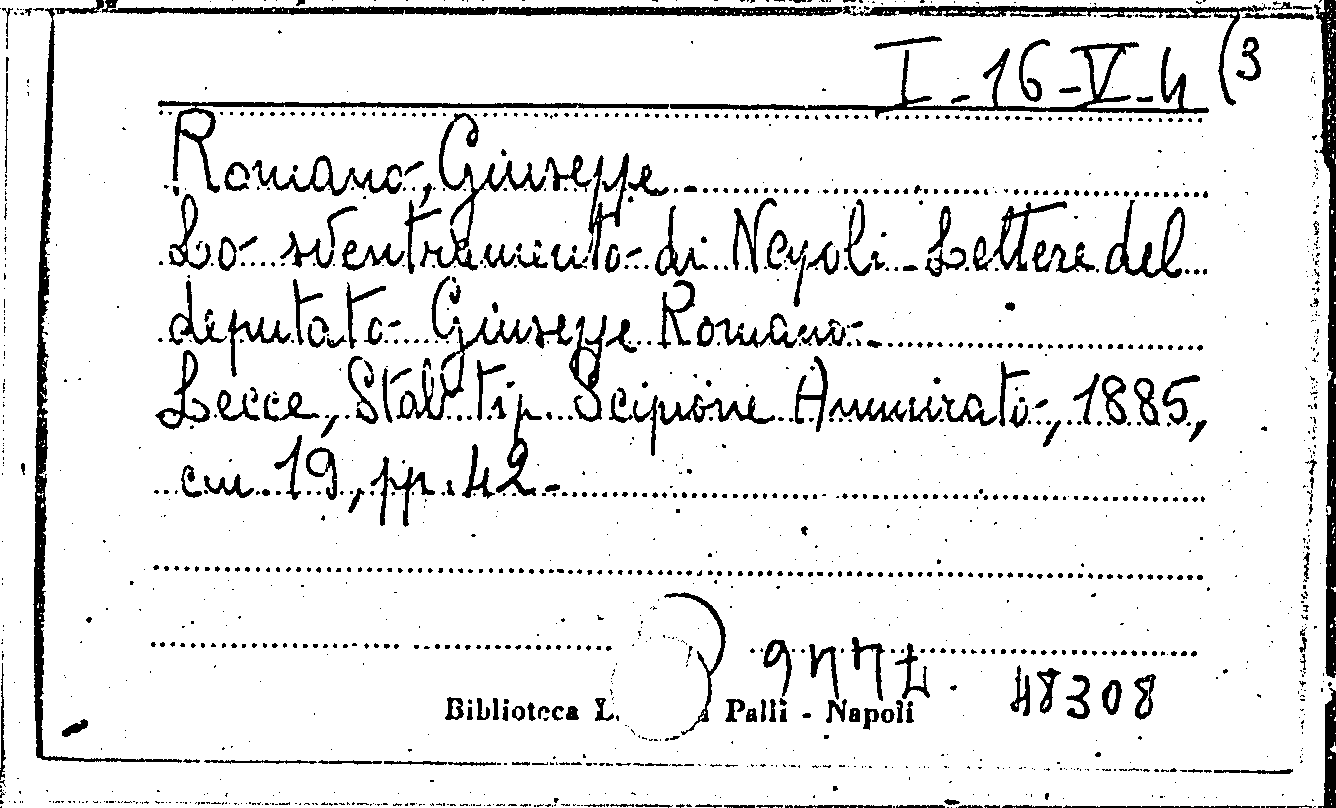 I-16-V-4 (3
Romano, Giuseppe -
Lo sventramento di Napoli - Lettere del
deputato Giuseppe Romano -
Lecce, Stab. tip. Scipione Ammirato, 1885,
cm. 19, pp. 42 -
48308
Biblioteca L. Palli - Napoli